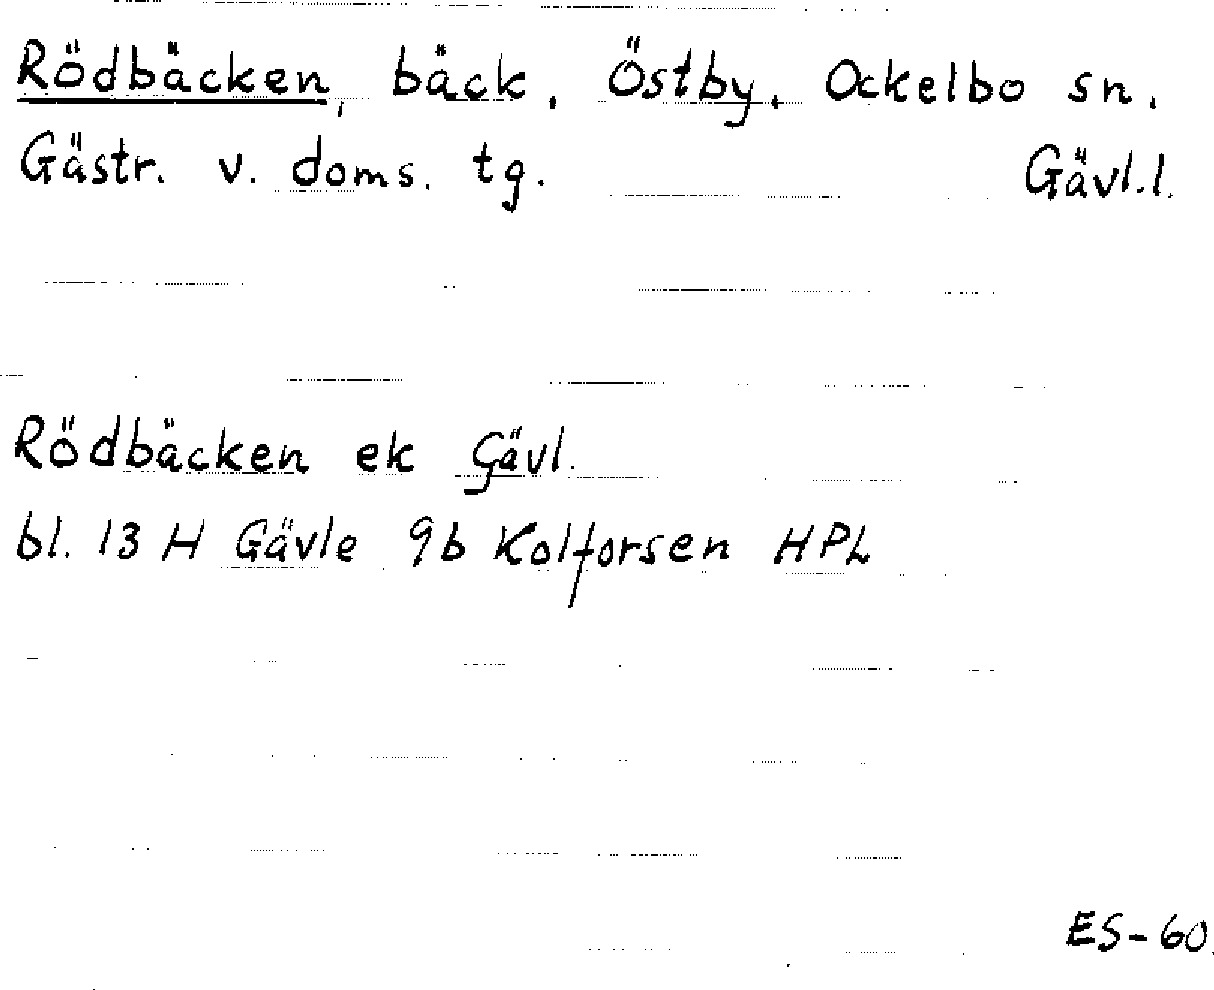 Rödbäcken, bäck, Östby, Ockelbo sn.
Gästr. v. doms. tg. Gävl.l.
Rödbäcken ek Gävl.
bl. 13 H Gävle 9b Kolforsen HPL
ES-60.